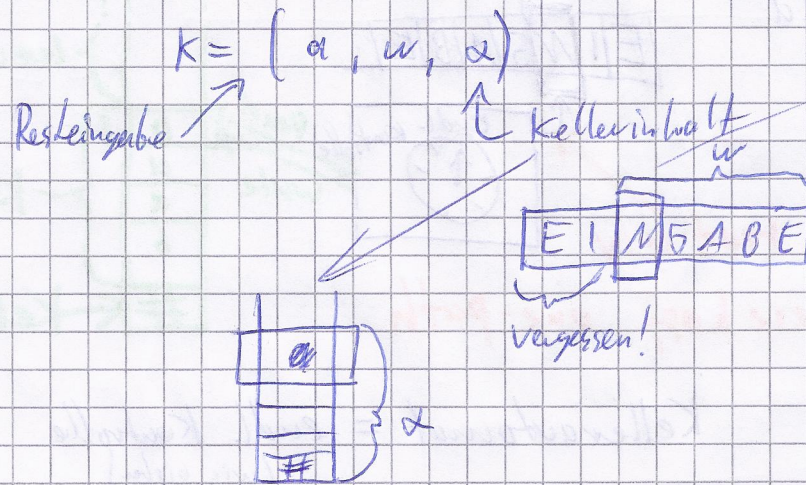 K = ( a , w , α )
Resteingabe
Kellerinhalt
w
E I N G A B E
vergessen!
α
#